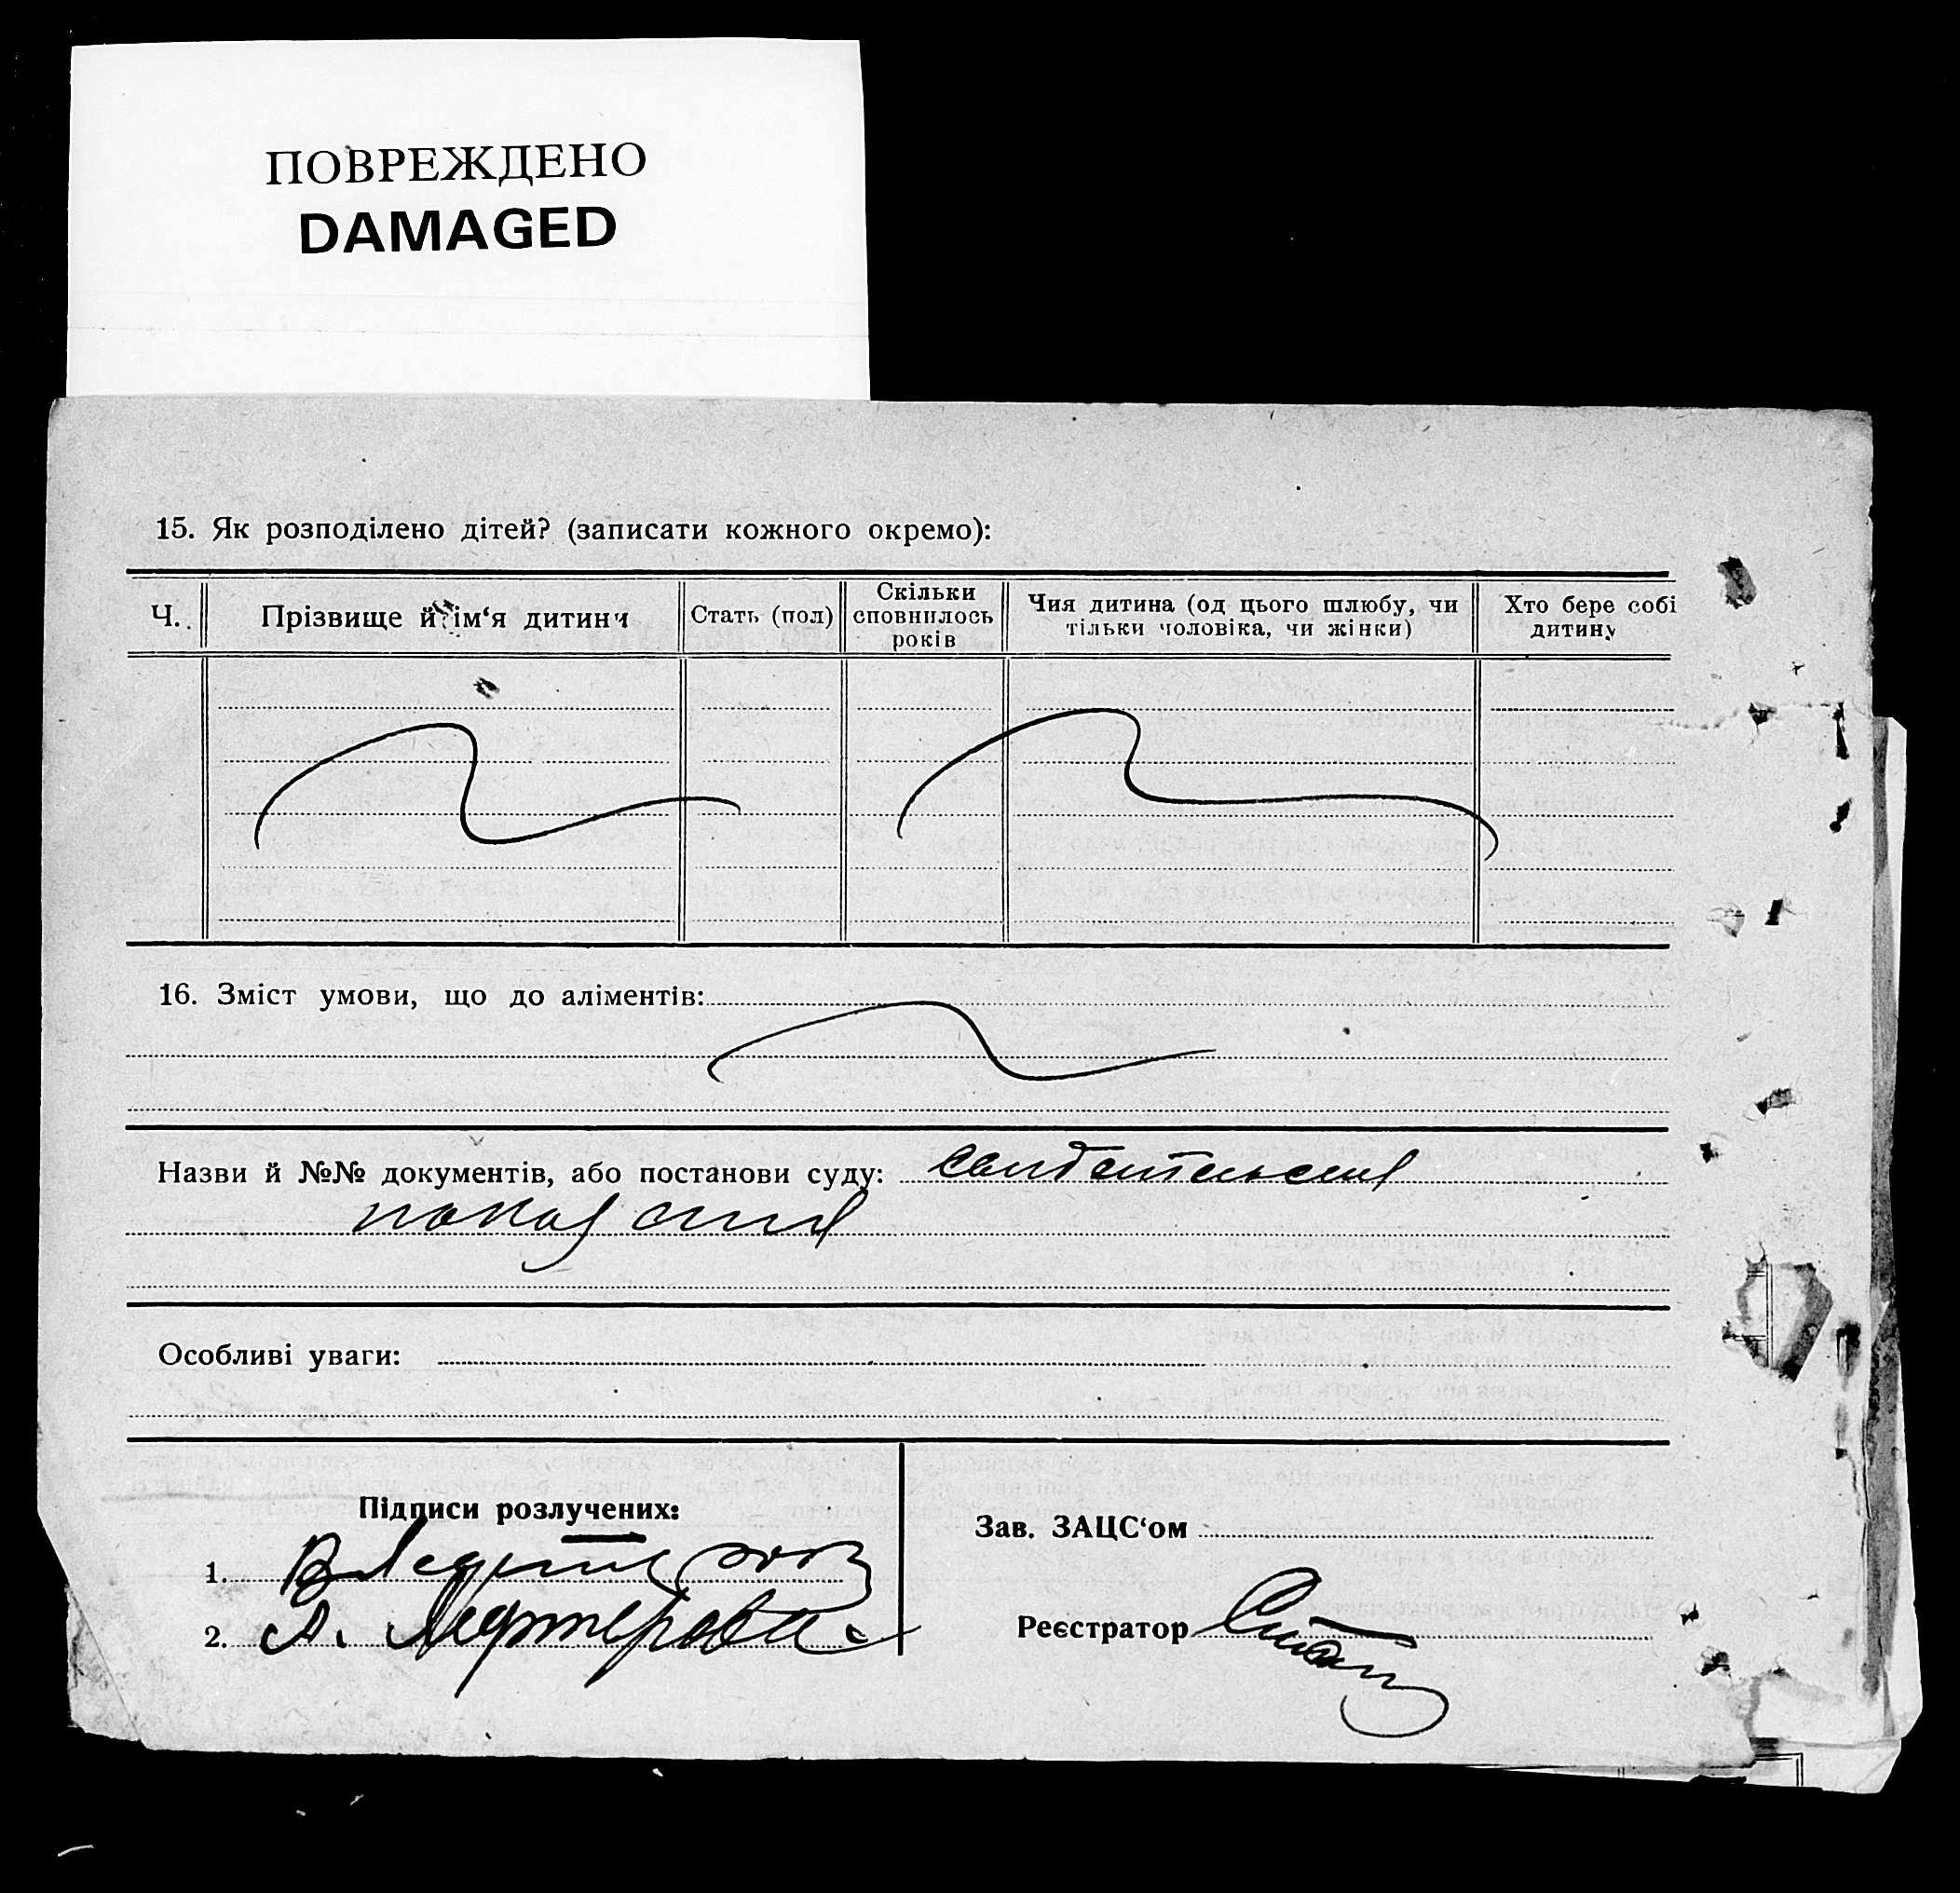 ПОВРЕЖДЕНО
DAMAGED
15. Як розподілено дітей? (записати кожного окремо):
Ч.
Прізвище й ім‘я дитини
Стать (пол)
Скільки
сповнилось
років
Чия дитина (од цього шлюбу, чи
тільки чоловіка, чи жінки)
Хто бере собі
дитину
16. Зміст умови, що до аліментів:
Назви й №№ документів, або постанови суду:
показания
Особливі уваги:
Підписи розлучених:
Зав. ЗАЦС‘ом
1.
2. А. Лефтерова
Реєстратор